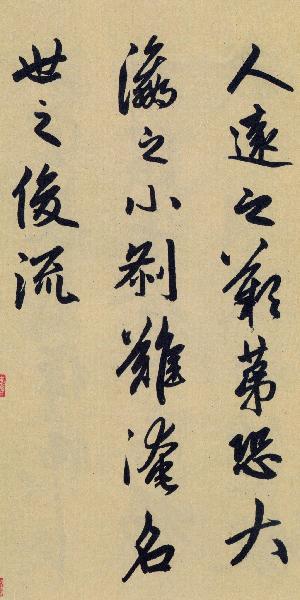 人远之艱第恐大
瀛之小刹難淹名
世之俊流